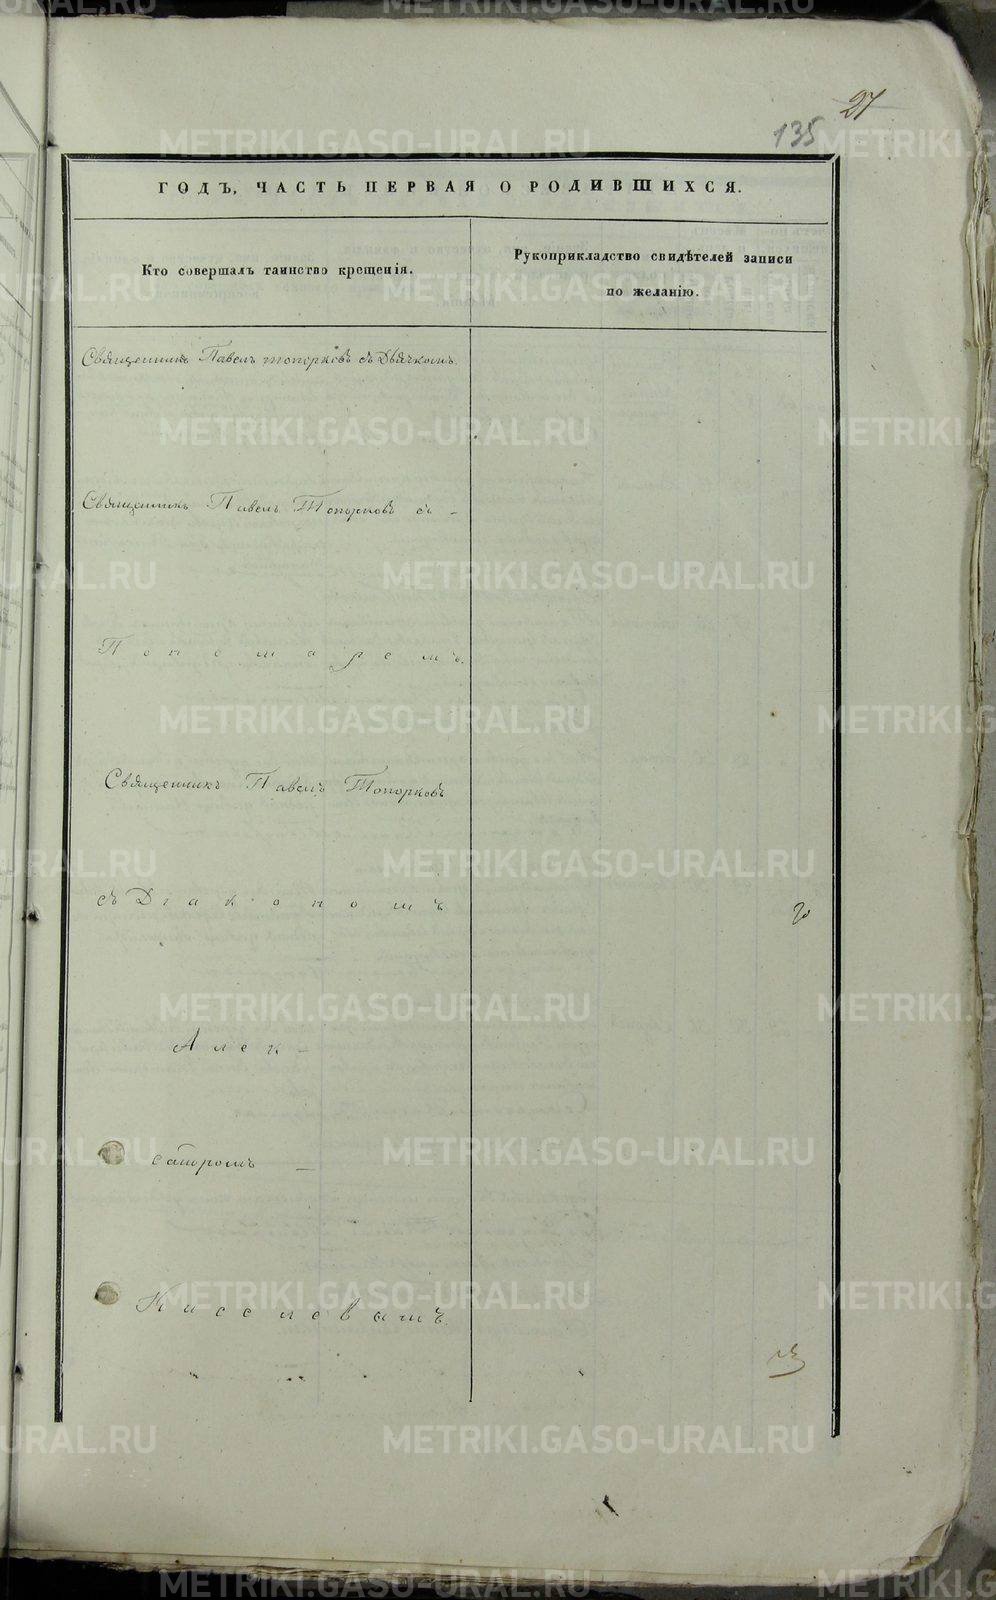 27
135
ГОДЪ, ЧАСТЬ ПЕРВАЯ О РОДИВШИХСЯ.
Кто совершалъ таинство крещенія.
Рукоприкладство свидѣтелей записи
по желанію.
Священникъ Павелъ Топорковъ съ Дьячкомъ.
Священникъ Павелъ Топорковъ съ -
Пономаремъ.
Священникъ Павелъ Топорковъ
съ Діакономъ
Алек -
сатромъ -
Киселевымъ.
METRIKI.GASO-URAL.RU